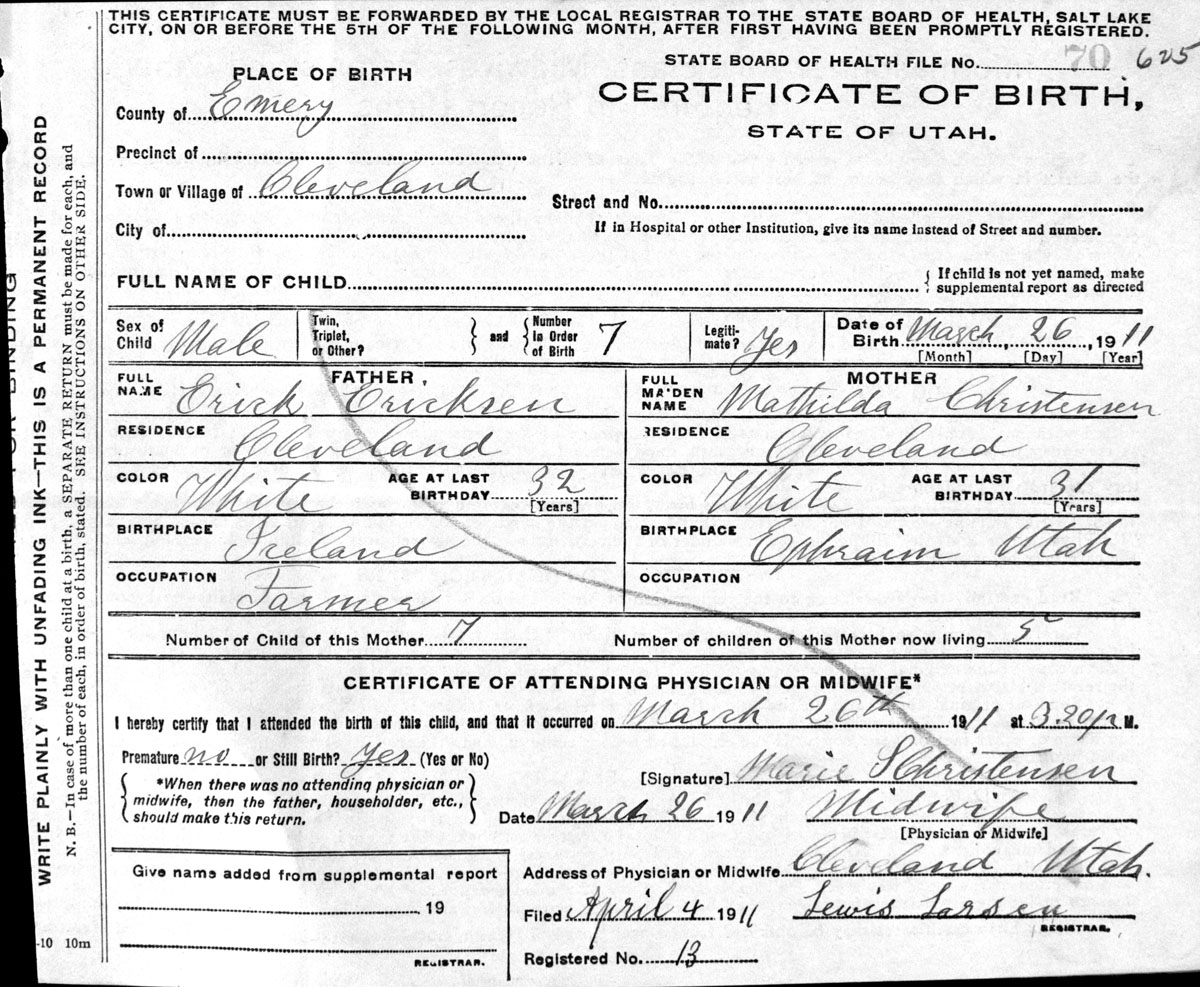 THIS CERTIFICATE MUST BE FORWARDED BY THE LOCAL REGISTRAR TO THE STATE BOARD OF HEALTH, SALT LAKE
CITY, ON OR BEFORE THE 5TH OF THE FOLLOWING MONTH, AFTER FIRST HAVING BEEN PROMPTLY REGISTERED.
STATE BOARD OF HEALTH FILE No. 70 625
CERTIFICATE OF BIRTH,
STATE OF UTAH.
PLACE OF BIRTH
County of Emery
Precinct of
Town or Village of Cleveland
City of
Street and No.
If in Hospital or other Institution, give its name instead of Street and number.
FULL NAME OF CHILD
If child is not yet named, make
supplemental report as directed
Sex of Child Male
Twin, Triplet, or Other? and Number In Order of Birth 7
Legiti-mate? Yes
Date of Birth March, 26, 1911
[Month] [Day] [Year]
FATHER.
FULL NAME Erick Ericksen
RESIDENCE Cleveland
COLOR White AGE AT LAST BIRTHDAY 32
[Years]
BIRTHPLACE Ireland
OCCUPATION Farmer
MOTHER
FULL MAIDEN NAME Mathilda Christensen
RESIDENCE Cleveland
COLOR White AGE AT LAST BIRTHDAY 31
[Years]
BIRTHPLACE Ephraim Utah
OCCUPATION
Number of Child of this Mother 7 Number of children of this Mother now living 5
CERTIFICATE OF ATTENDING PHYSICIAN OR MIDWIFE*
I hereby certify that I attended the birth of this child, and that it occurred on March 26th 1911 at 3.20p M.
Premature no or Still Birth? Yes (Yes or No)
*When there was no attending physician or
midwife, then the father, householder, etc.,
should make this return.
[Signature] Marie S Christensen
Date March 26 1911 Midwife
[Physician or Midwife]
Give name added from supplemental report
19
REGISTRAR.
Address of Physician or Midwife Cleveland Utah.
Filed April 4 1911 Lewis Larsen
REGISTRAR.
Registered No. 13
FOR BINDING
WRITE PLAINLY WITH UNFADING INK—THIS IS A PERMANENT RECORD
N. B.—In case of more than one child at a birth, a SEPARATE RETURN must be made for each, and
the number of each, in order of birth, stated. SEE INSTRUCTIONS ON OTHER SIDE.
-10 10m